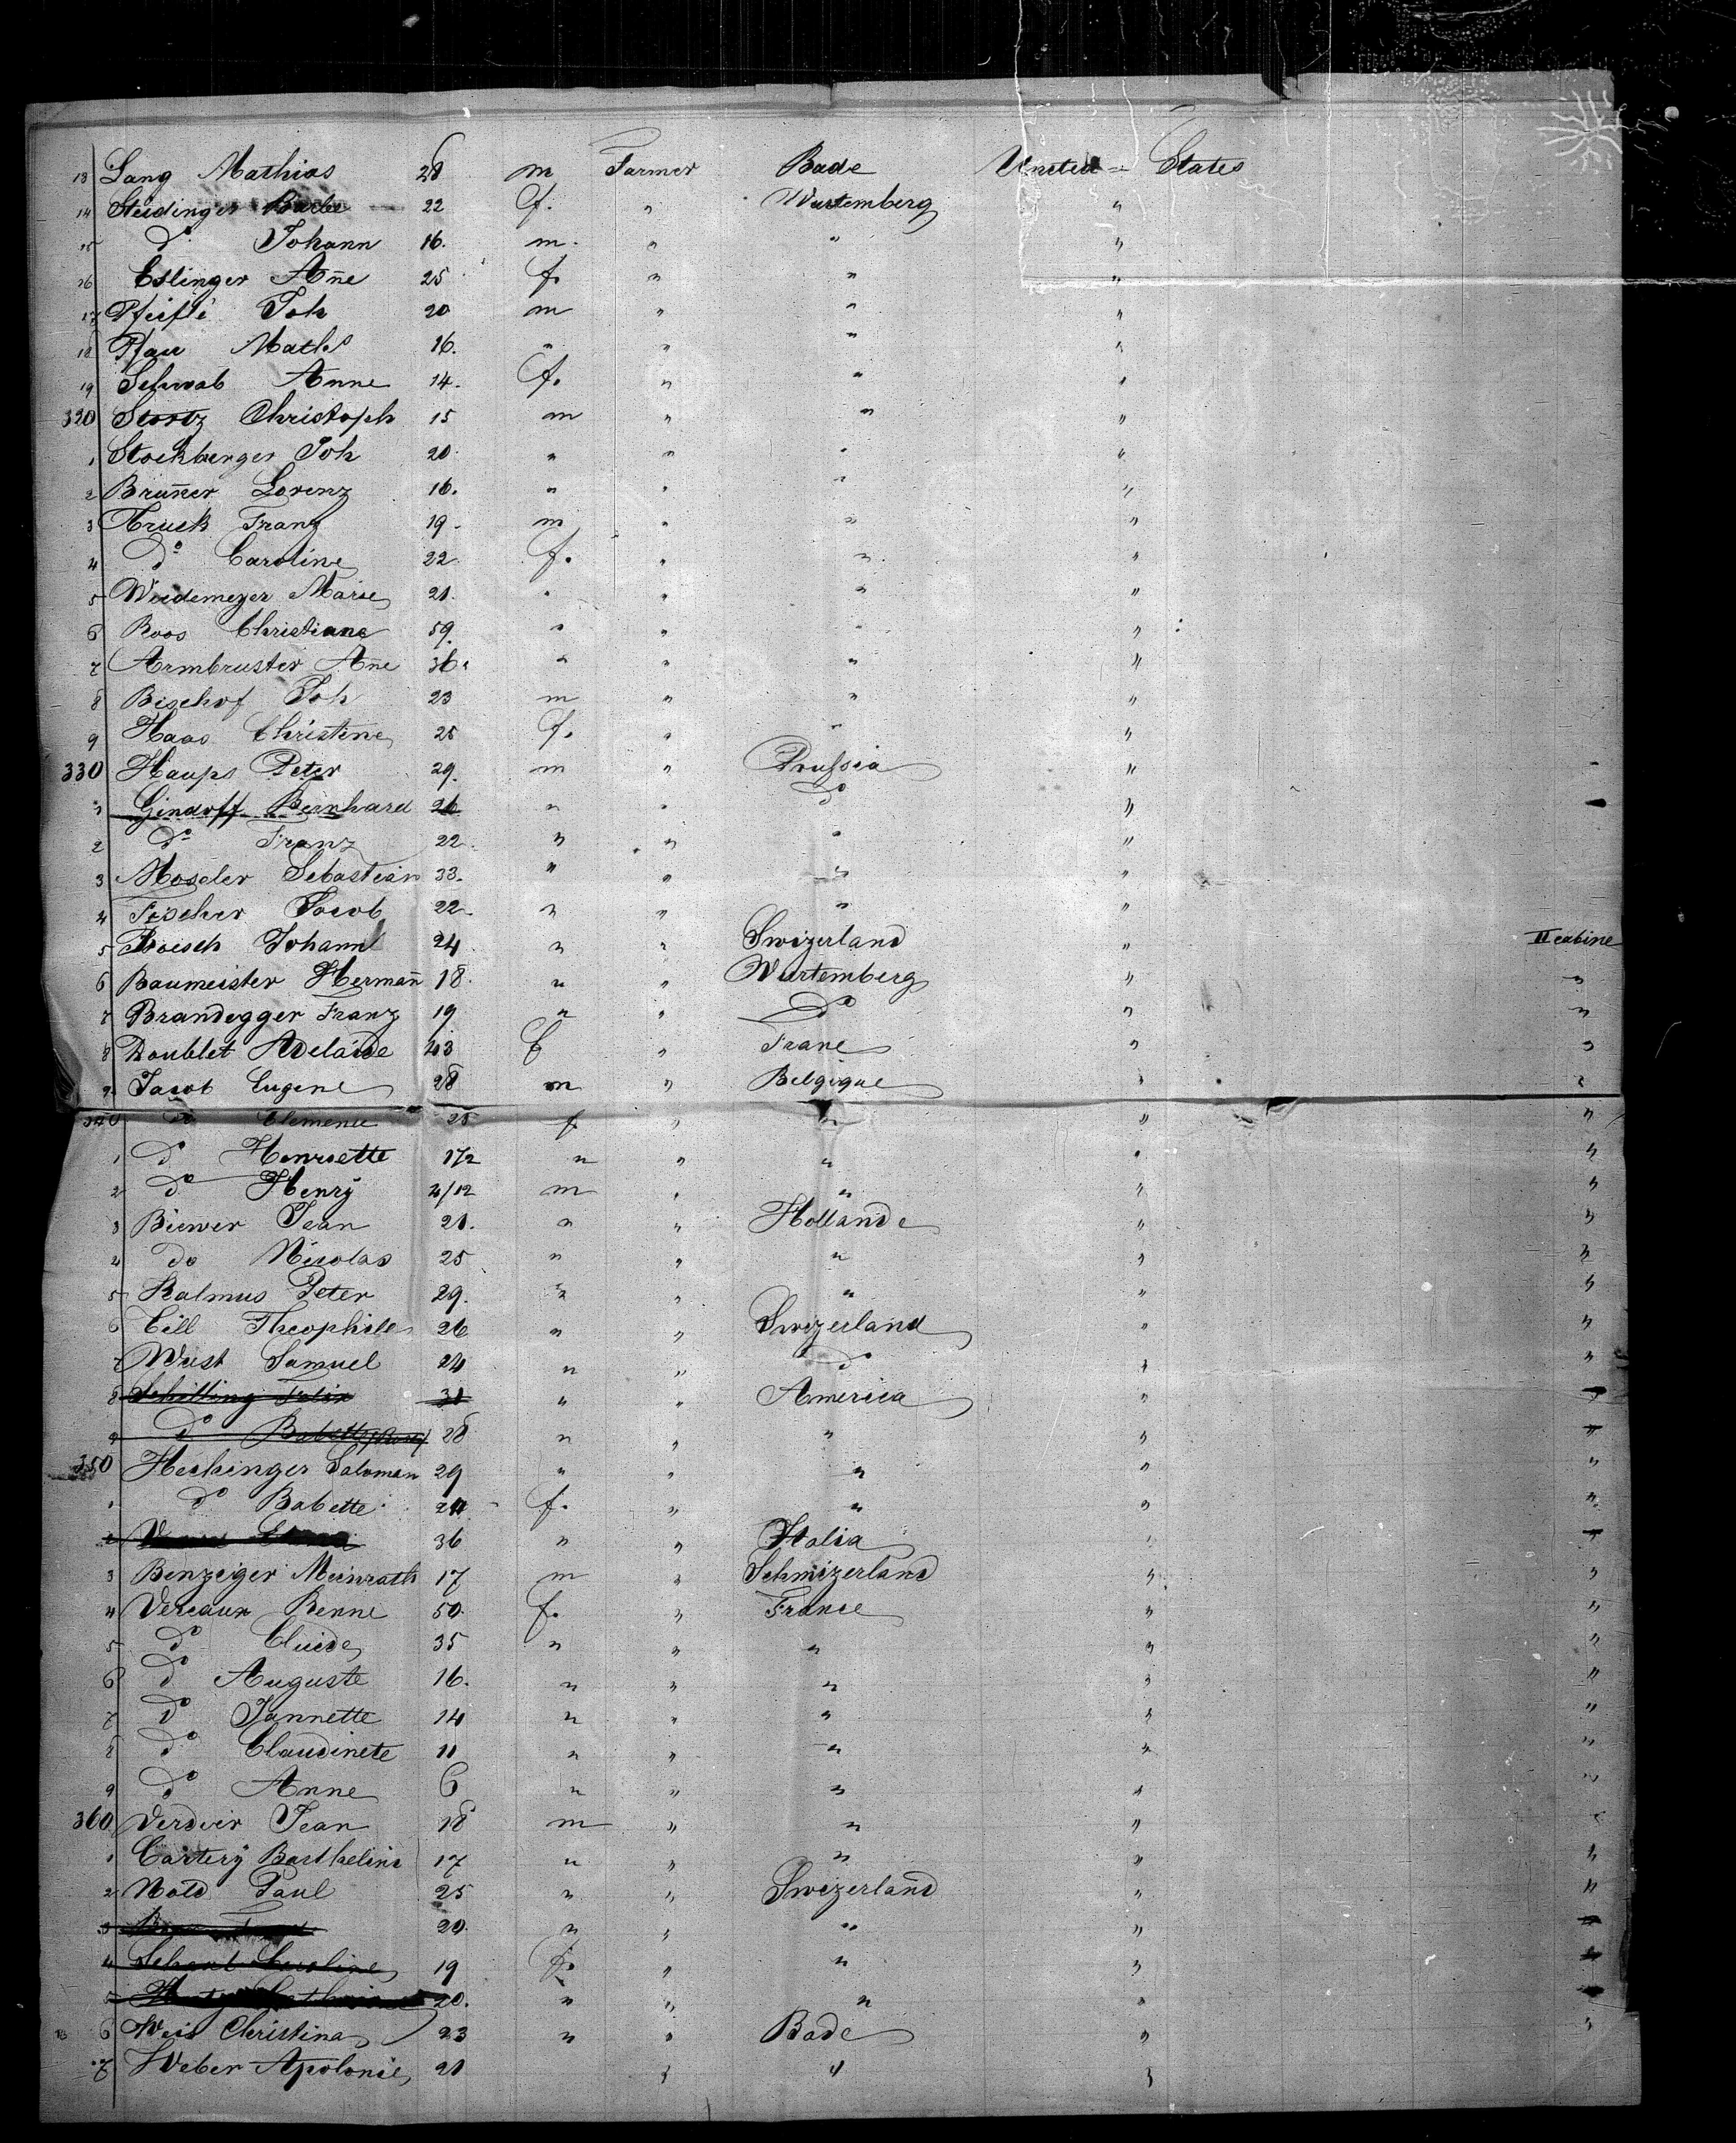 13 Lang Mathias 28 m Farmer Bade United States
14 Steidinger Barbe 22 f. " Wurtemberg "
15 do Johann 16. m. " " "
26 Eslinger Añe 25 f. " " "
17 Pfeifli Joh 20 m " " "
18 Pfau Maths 16. " " " "
19 Schwab Anne 14. f. " " "
320 Stortz Christoph 15 m " " "
1 Stockberger Joh 20 " " " "
2 Bruñer Lorenz 16. " " " "
3 Truck Franz 19 m " " "
4 do Caroline 22 f. " " "
5 Wiedemeyer Marie 21. " " " "
6 Roos Christiane 59. " " " "
7 Armbruster Añe 36. " " " "
8 Bischof Joh 23 m " " "
9 Haas Christine 25 f. " " "
330 Haups Peter 29. m " Prussia "
1 Gindorff Bernhard 26 " " do "
2 do Franz 22. " " " "
3 Moseler Sebastian 33. " " " "
4 Fischer Jacob 22. " " " "
5 Boesch Johann 24 " " Swizerland " II cabine
6 Baumeister Hermañ 18. " " Wurtemberg " "
7 Brandegger Franz 19 " " do " "
8 Doublet Adelaide 43 f " Frane " "
9 Jacob Eugene 28 m " Belgique " "
340 do Clemence 25 f " " " "
1 do Henriette 1½ " " " " "
2 do Henry 4/12 m " " " "
3 Biewer Jean 21. " " Hollande " "
4 do Nicolas 25 " " " " "
5 Kalmus Peter 29. " " " " "
6 Cill Theophile 26 " " Swizerland " "
7 Wust Samuel 24 " " do " "
8 Schilling Felix 31 " " America "
9 do Babette 28 " " " "
350 Hechinger Saloman 29 " " " " "
1 do Babette 24 f. " " " "
2 36 " " Italia "
3 Benzeiger Meinrath 17 m " Schwizerland " "
4 Vereaux Benne 50. f. " France " "
5 do Cluide 35 " " " " "
6 do Auguste 16. " " " " "
7 do Jannette 14 " " " " "
8 do Claudinete 11 " " " " "
9 do Anne 6 " " " " "
360 Verdvir Jean 18 m " " " "
1 Cartery Barthelini 17 " " " " "
2 Nold Paul 25 " " Swizerland " "
3 20. " " " "
4 Schaub Caroline 19 f. " " "
5 20. " " " "
6 Weis Christina 23 " " Bade " "
7 Weber Apolonie 21 " " "